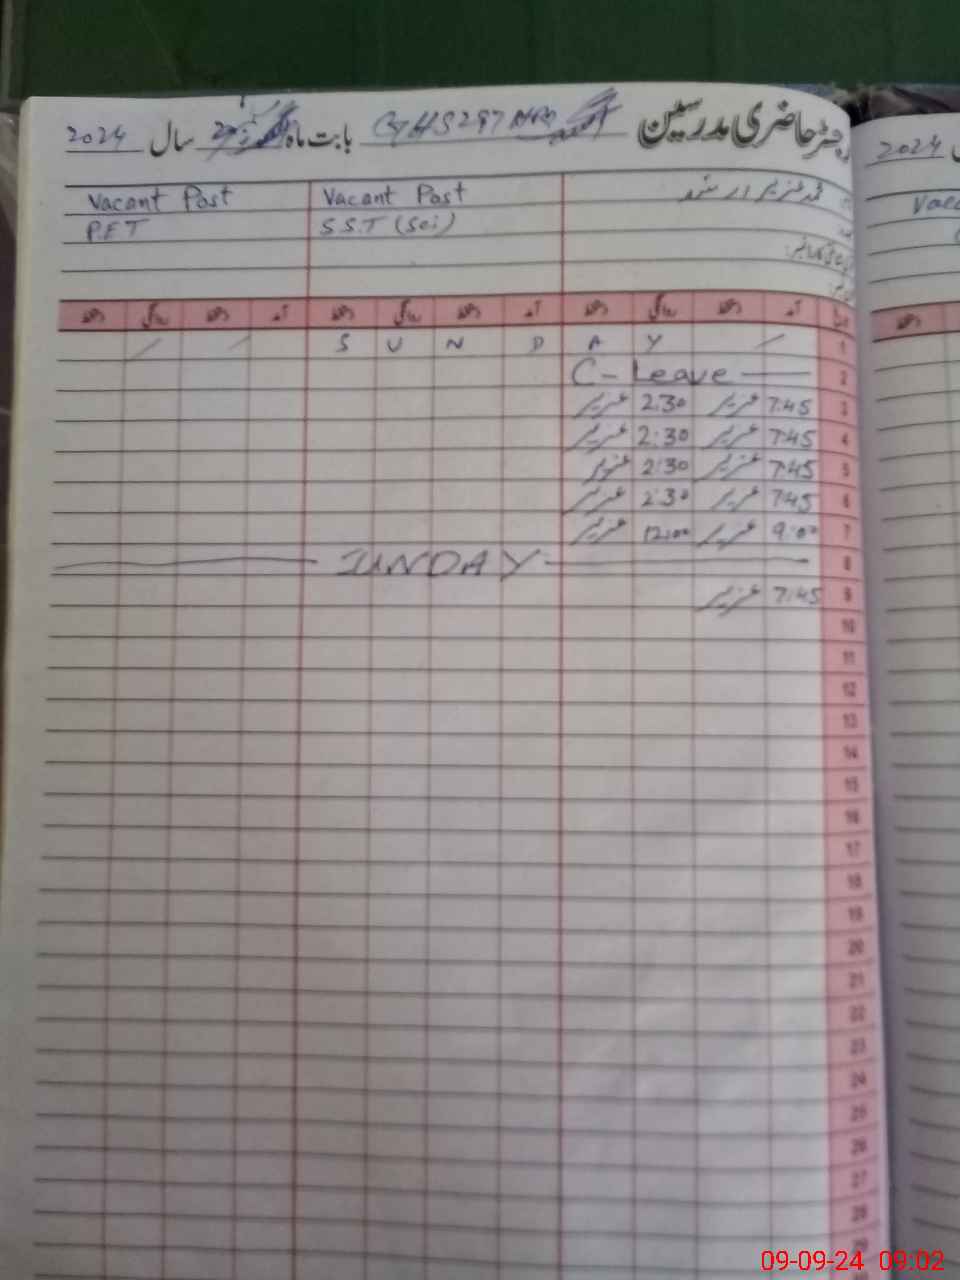 رجسٹر حاضری مدرسین بابت ماہ سال 2024
محمد عزیر ارشد Vacant Post Vacant Post
S.S.T (Sci) P.E.T
آمد دستخط روانگی دستخط آمد دستخط روانگی دستخط آمد دستخط روانگی دستخط
1 S U N D A Y
2 C- Leave
3 7:45 عزیر 2:30 عزیر
4 7:45 عزیر 2:30 عزیر
5 7:45 عزیر 2:30 عزیر
6 7:45 عزیر 2:30 عزیر
7 9:00 عزیر 12:00 عزیر
8 SUNDAY
9 7:45 عزیر
10
11
12
13
14
15
16
17
18
19
20
21
22
23
24
25
26
27
28
29
2024
09-09-24 09:02